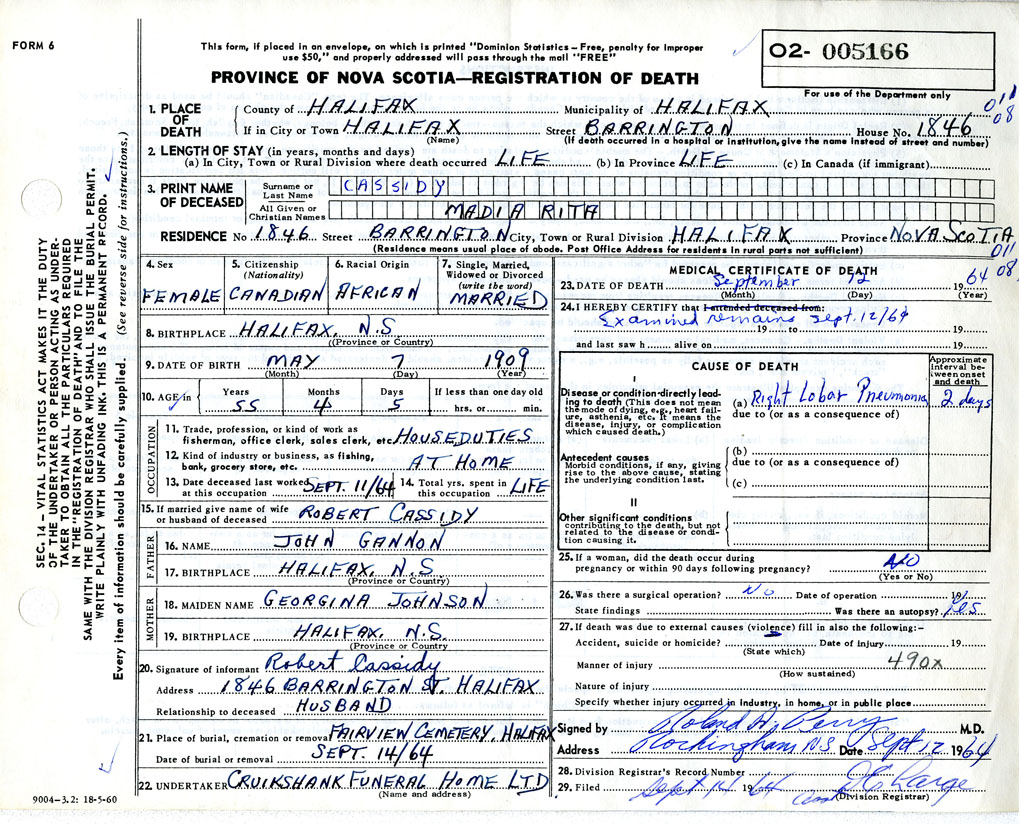 FORM 6
This form, if placed in an envelope, on which is printed "Dominion Statistics — Free, penalty for improper
use $50," and properly addressed will pass through the mail "FREE"
PROVINCE OF NOVA SCOTIA—REGISTRATION OF DEATH
02- 005166
For use of the Department only
011
08
1. PLACE OF DEATH County of HALIFAX Municipality of HALIFAX
If in City or Town HALIFAX Street BARRINGTON House No. 1846
(Name) (If death occurred in a hospital or institution, give the name instead of street and number)
2. LENGTH OF STAY (in years, months and days)
(a) In City, Town or Rural Division where death occurred LIFE (b) In Province LIFE (c) In Canada (if immigrant)
3. PRINT NAME OF DECEASED Surname or Last Name CASSIDY
All Given or Christian Names MADIA RITA
RESIDENCE No 1846 Street BARRINGTON City, Town or Rural Division HALIFAX Province NOVA SCOTIA
(Residence means usual place of abode. Post Office Address for residents in rural parts not sufficient)
011
08
4. Sex FEMALE
5. Citizenship (Nationality) CANADIAN
6. Racial Origin AFRICAN
7. Single, Married, Widowed or Divorced (write the word) MARRIED
8. BIRTHPLACE HALIFAX, N.S
(Province or Country)
9. DATE OF BIRTH MAY 7 1909
(Month) (Day) (Year)
10. AGE in Years Months Days If less than one day old
55 4 5 hrs. or min.
OCCUPATION
11. Trade, profession, or kind of work as
fisherman, office clerk, sales clerk, etc. HOUSEDUTIES
12. Kind of industry or business, as fishing,
bank, grocery store, etc. AT HOME
13. Date deceased last worked at this occupation SEPT. 11/64 14. Total yrs. spent in this occupation LIFE
15. If married give name of wife
or husband of deceased ROBERT CASSIDY
FATHER
16. NAME JOHN GANNON
17. BIRTHPLACE HALIFAX, N.S.
(Province or Country)
MOTHER
18. MAIDEN NAME GEORGINA JOHNSON
19. BIRTHPLACE HALIFAX, N.S.
(Province or Country)
20. Signature of informant Robert Cassidy
Address 1846 BARRINGTON ST. HALIFAX
Relationship to deceased HUSBAND
21. Place of burial, cremation or removal FAIRVIEW CEMETERY, HALIFAX
Date of burial or removal SEPT. 14/64
22. UNDERTAKER CRUIKSHANK FUNERAL HOME LTD
(Name and address)
MEDICAL CERTIFICATE OF DEATH
23. DATE OF DEATH September 12 19 64
(Month) (Day) (Year)
24. I HEREBY CERTIFY that I attended deceased from:
Examined remains Sept. 12/64
19 to 19
and last saw h alive on 19
CAUSE OF DEATH
Approximate interval between onset and death
I
Disease or condition directly leading to death (This does not mean the mode of dying, e.g., heart failure, asthenia, etc. It means the disease, injury, or complication which caused death.)
(a) Right Lobar Pneumonia 2 days
due to (or as a consequence of)
Antecedent causes
Morbid conditions, if any, giving rise to the above cause, stating the underlying condition last.
(b)
due to (or as a consequence of)
(c)
II
Other significant conditions
contributing to the death, but not related to the disease or condition causing it.
25. If a woman, did the death occur during
pregnancy or within 90 days following pregnancy? NO
(Yes or No)
26. Was there a surgical operation? No Date of operation 19
State findings Was there an autopsy? Yes
27. If death was due to external causes (violence) fill in also the following:—
Accident, suicide or homicide? Date of injury 19
(State which)
Manner of injury 490X
(How sustained)
Nature of injury
Specify whether injury occurred in industry, in home, or in public place
Signed by Roland A. Perry M.D.
Address Rockingham N.S Date Sept 12 1964
28. Division Registrar's Record Number
29. Filed Sept 14 1964
(Division Registrar)
SEC. 14 — VITAL STATISTICS ACT MAKES IT THE DUTY
OF THE UNDERTAKER OR PERSON ACTING AS UNDER-
TAKER TO OBTAIN ALL THE PARTICULARS REQUIRED
IN THE "REGISTRATION OF DEATH" AND TO FILE THE
SAME WITH THE DIVISION REGISTRAR WHO SHALL ISSUE THE BURIAL PERMIT.
WRITE PLAINLY WITH UNFADING INK. THIS IS A PERMANENT RECORD.
Every item of information should be carefully supplied. (See reverse side for instructions.)
9004—3.2: 18-5-60